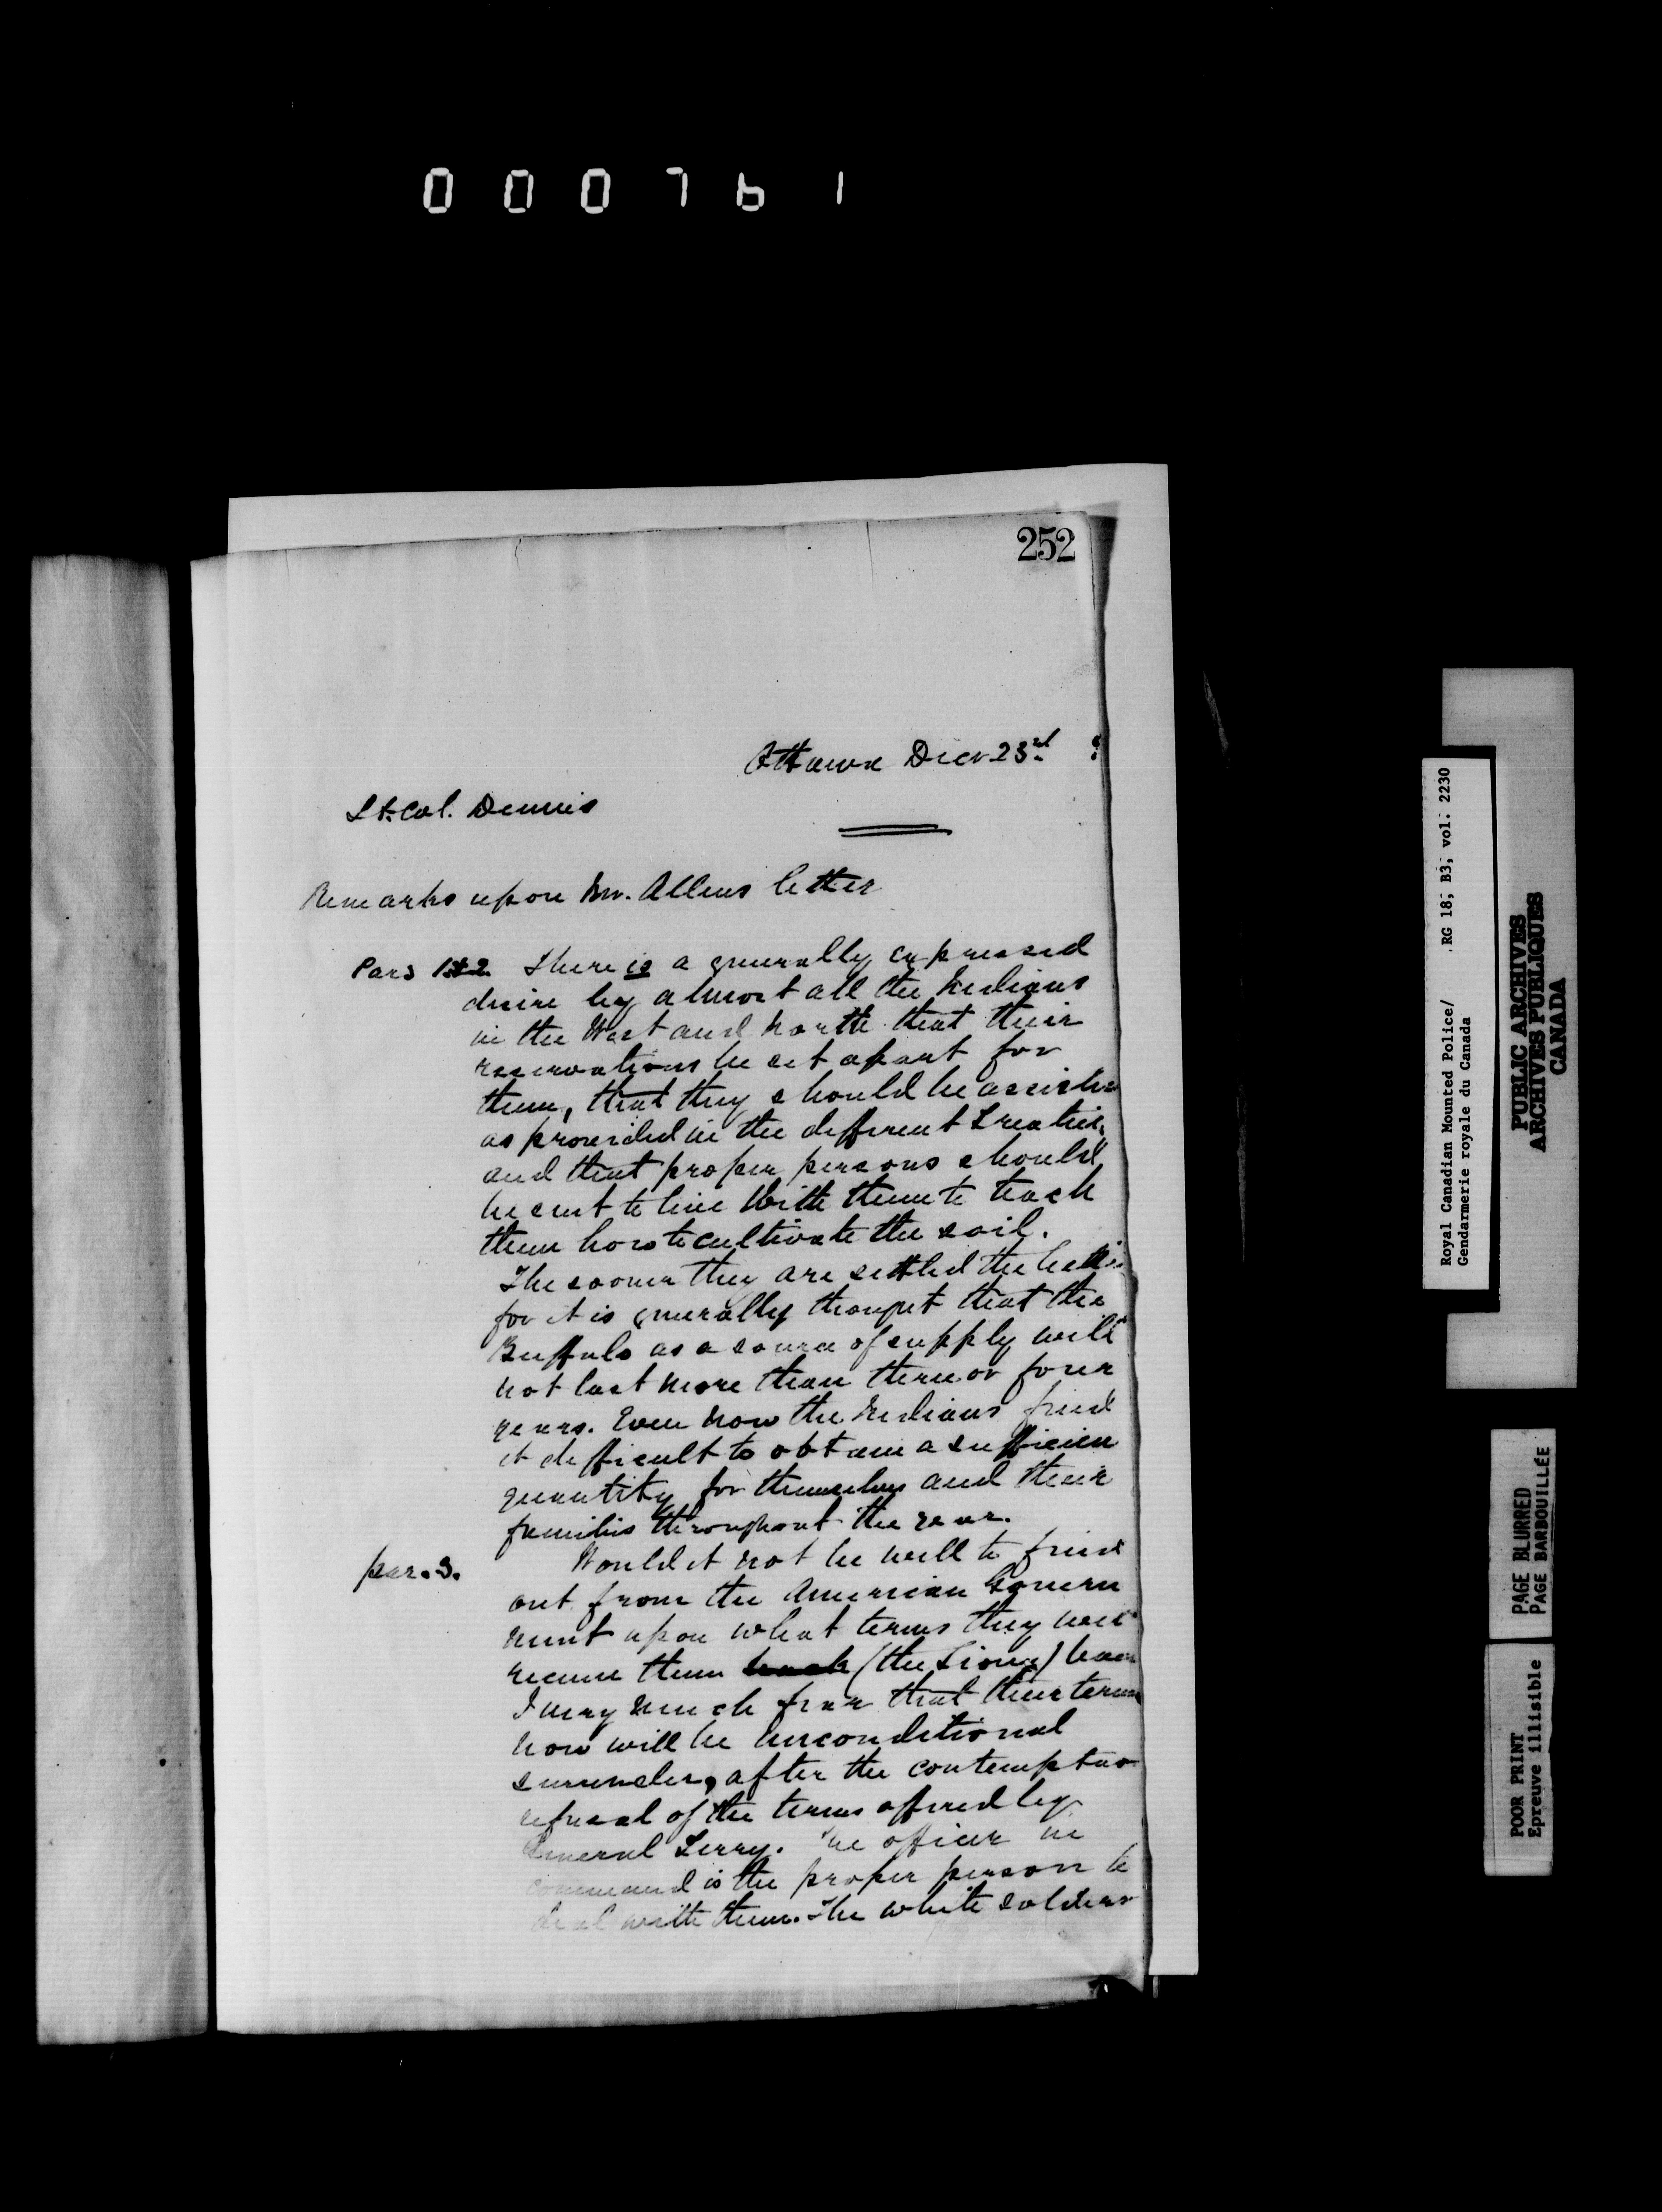 000761
252
Ottawa Decr 23rd
Lt. Col. Dennis
Remarks upon Mr. Allens letter
Pars 1 & 2. There is a generally expressed
desire by almost all the Indians
in the West and North that their
reservations be set apart for
them, that they should be assiste
as provided in the different Treaties,
and that proper persons should
be sent to live with them to teach
them how to cultivate the soil.
The sooner they are settled the better
for it is generally thought that the
Buffalo as a source of supply will
not last more than three or four
years. Even now the Indians find
it difficult to obtain a sufficien
quantity for themselves and their
families throughout the year.
par. 3. Would it not be well to find
out from the American Govern
ment upon what terms they will
receive them back (the Sioux) back
I very much fear that their terms
now will be unconditional
surrender, after the contemptuo
refusal of the terms offered by
General Terry. The officer in
command is the proper person to
deal with them. The white soldiers
Royal Canadian Mounted Police/ RG 18; B3; vol. 2230
Gendarmerie royale du Canada
PUBLIC ARCHIVES
ARCHIVES PUBLIQUES
CANADA
PAGE BLURRED
PAGE BARBOUILLÉE
POOR PRINT
Epreuve illisible